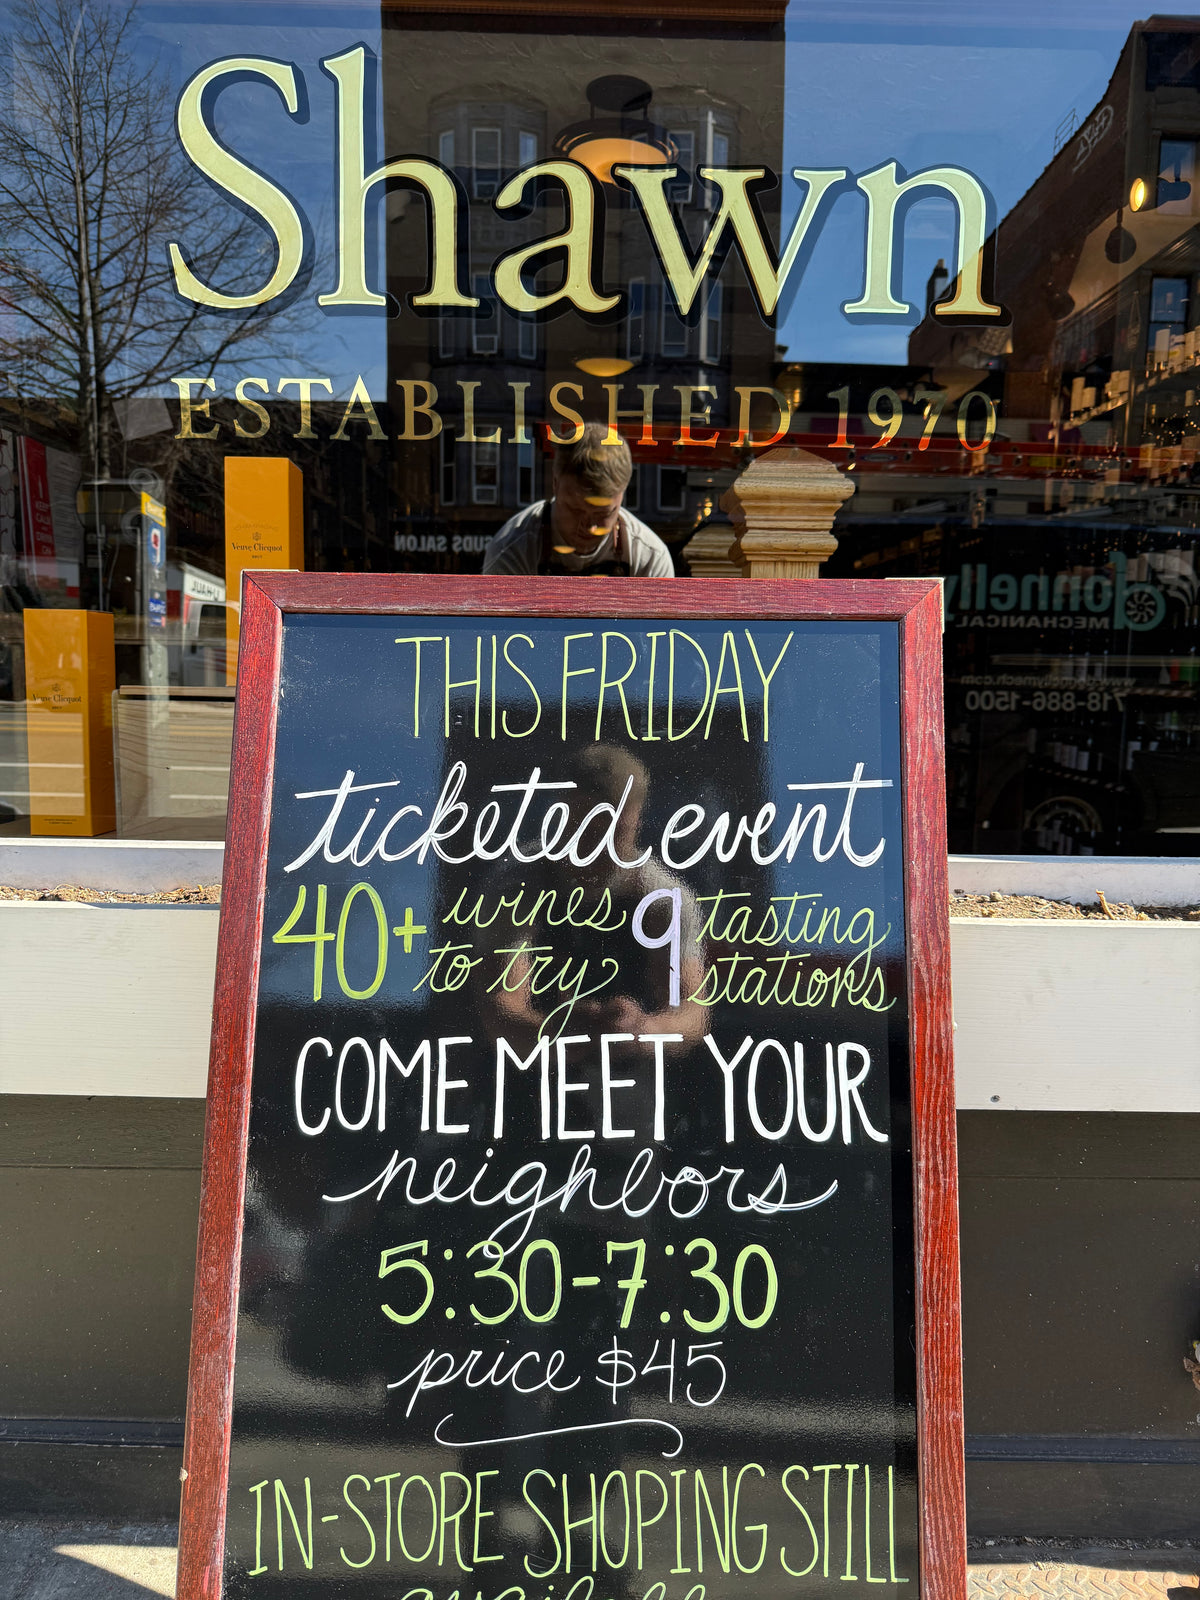 Shawn
ESTABLISHED 1970
Veuve Clicquot
BRUT
Veuve Clicquot
BRUT
SUDS SALON
U-HAUL
donnelly
MECHANICAL
www.donnellymech.com
718-886-1500
THIS FRIDAY
ticketed event
40+ wines to try 9 tasting stations
COME MEET YOUR
neighbors
5:30-7:30
price $45
IN-STORE SHOPING STILL
available